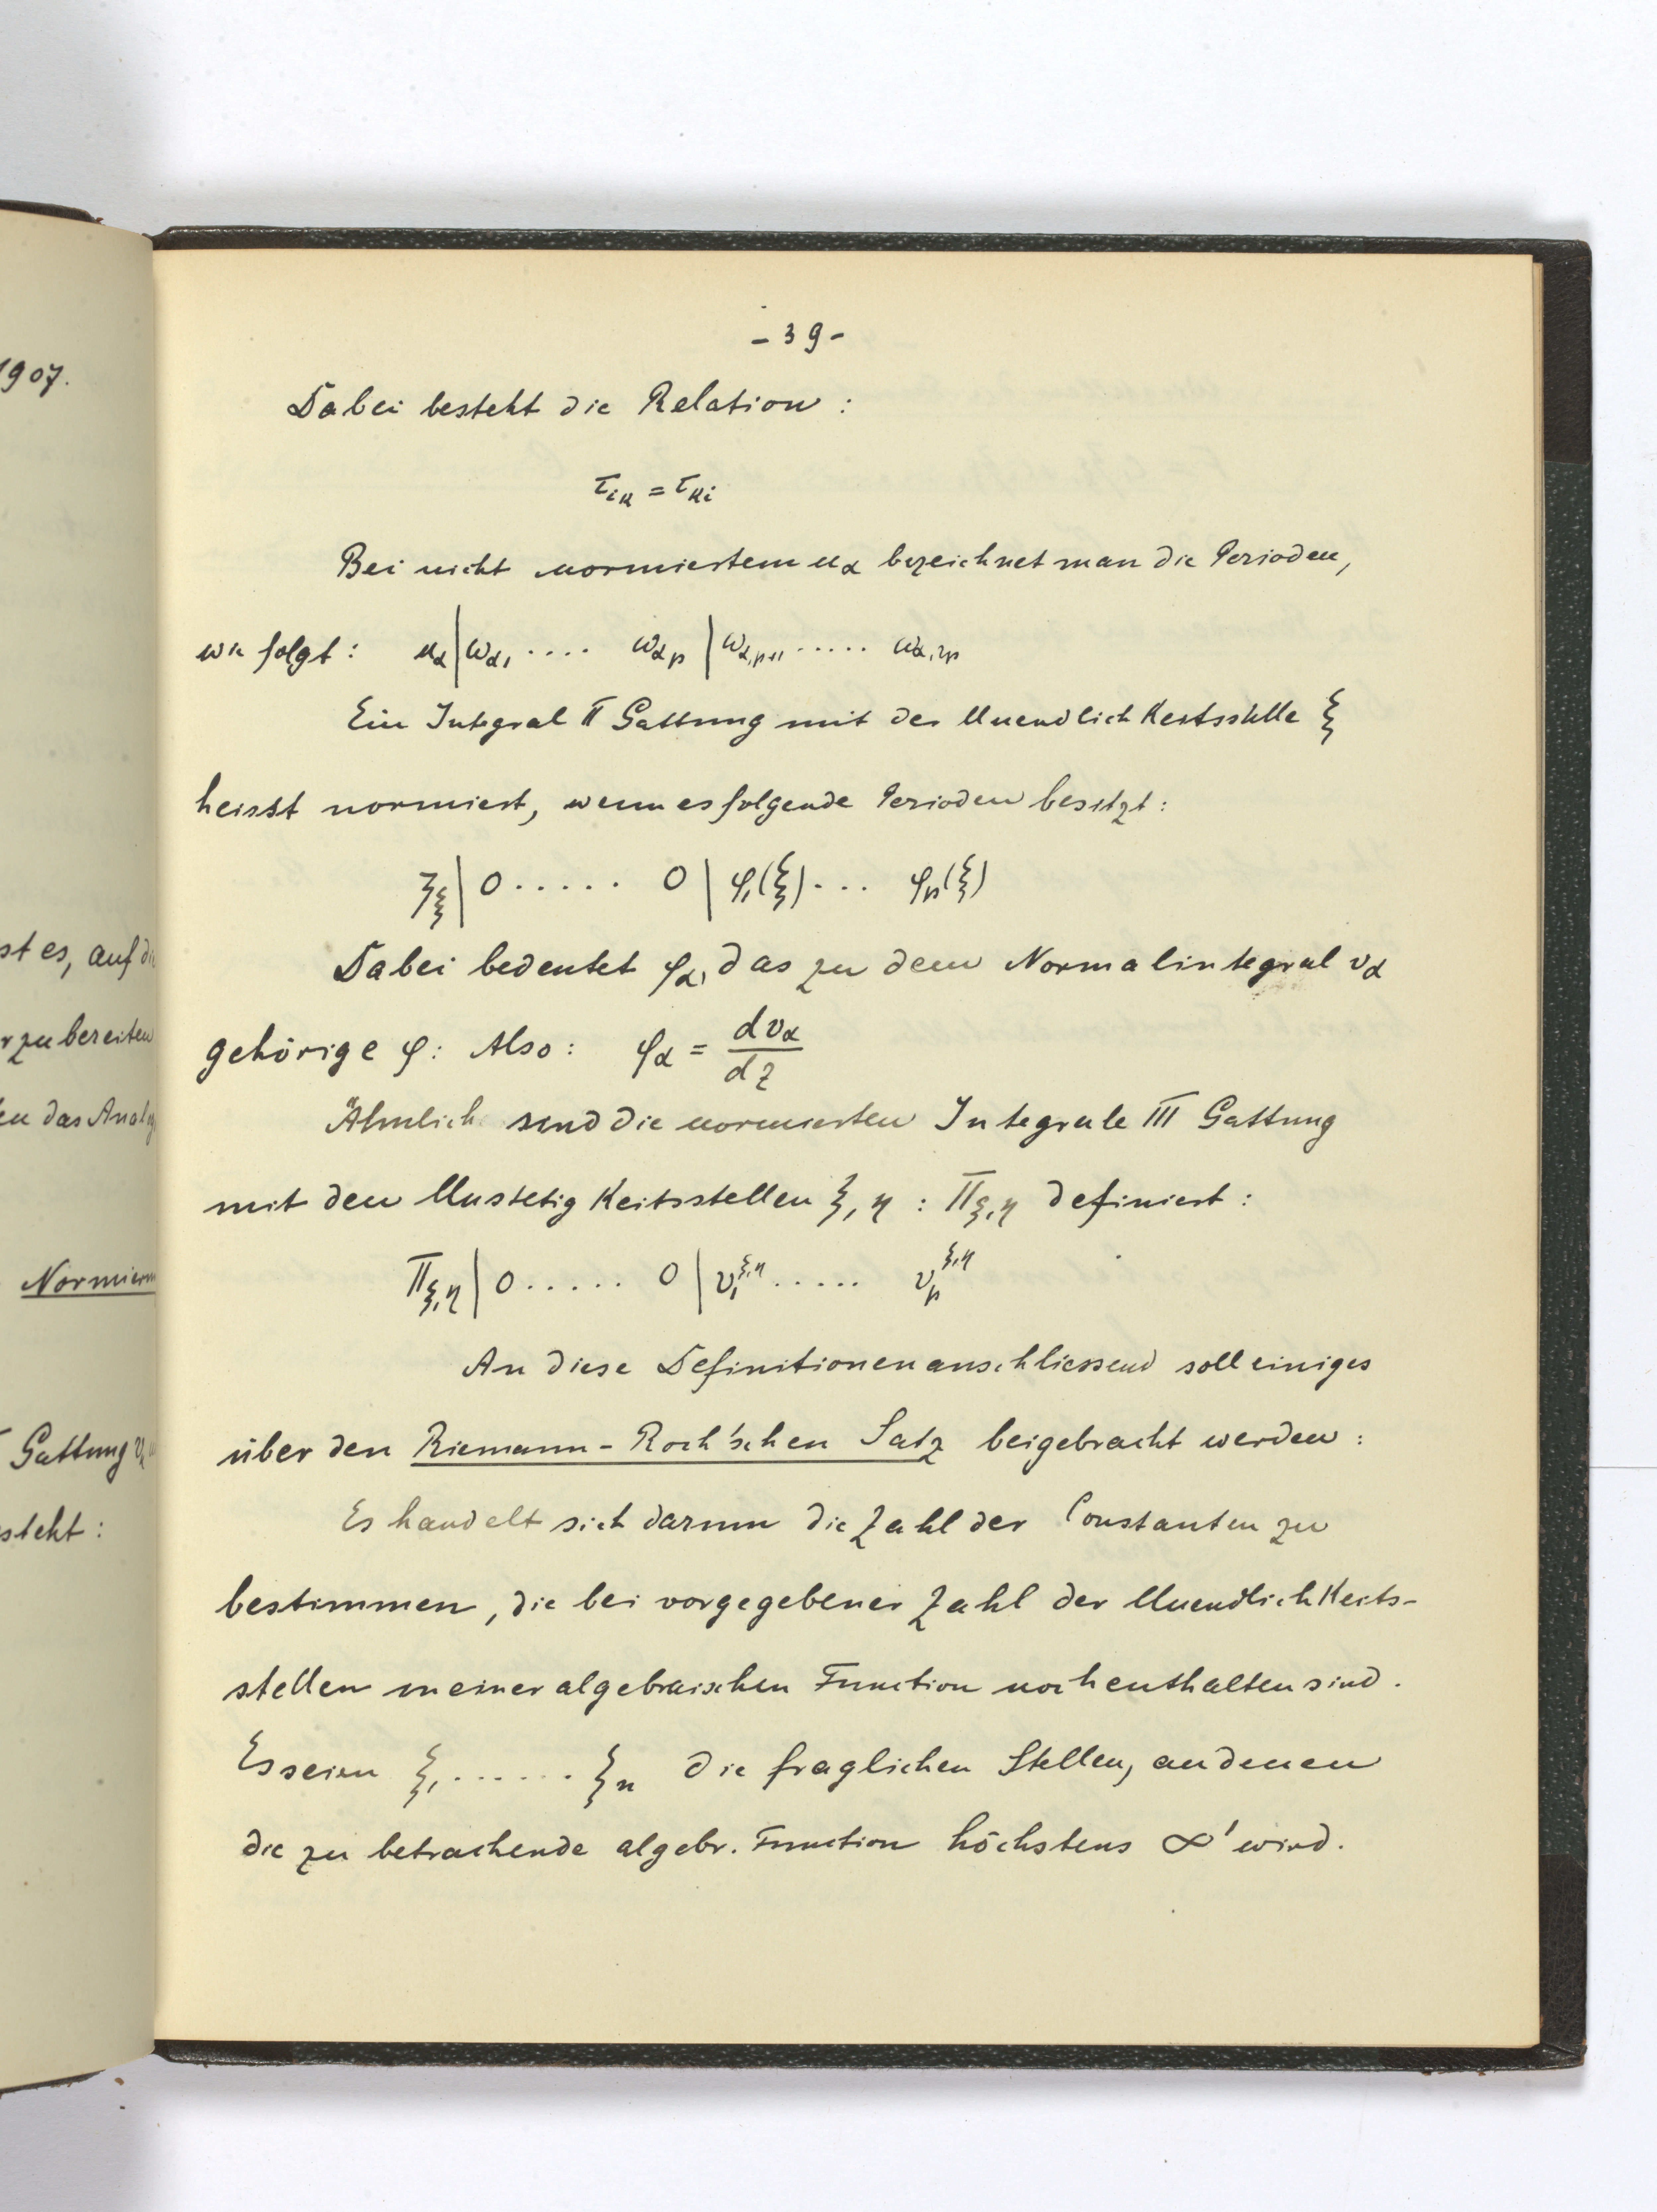 1907.
st es, auf di
r zu bereiten
en das Analy
Normierun
Gattung v
steht:
- 39 -
Dabei besteht die Relation:
τ_{ik} = τ_{ki}
Bei nicht normiertem u_α bezeichnet man die Perioden,
wie folgt: u_α | ω_{α1} .... ω_{αp} | ω_{α,p+1} ..... ω_{α,2p}
Ein Integral II Gattung mit der Unendlichkeitsstelle ξ
heisst normiert, wenn es folgende Perioden besitzt:
ζ_ξ | 0 ..... 0 | φ_1(ξ) ... φ_p(ξ)
Dabei bedeutet φ_α, das zu dem Normalintegral v_α
gehörige φ: Also: φ_α = dv_α/dz
Ähnlich sind die normierten Integrale III Gattung
mit den Unstetigkeitsstellen ξ, η : Π_{ξ,η} definiert:
Π_{ξ,η} | 0 ..... 0 | v_1^{ξ,η} ..... v_p^{ξ,η}
An diese Definitionen anschliessend soll einiges
über den Riemann-Roch'schen Satz beigebracht werden:
Es handelt sich darum die Zahl der Constanten zu
bestimmen, die bei vorgegebener Zahl der Unendlichkeits-
stellen in einer algebraischen Function noch enthalten sind.
Es seien ξ_1 ...... ξ_n die fraglichen Stellen, an denen
die zu betrachende algebr. Function höchstens ∞^1 wird.